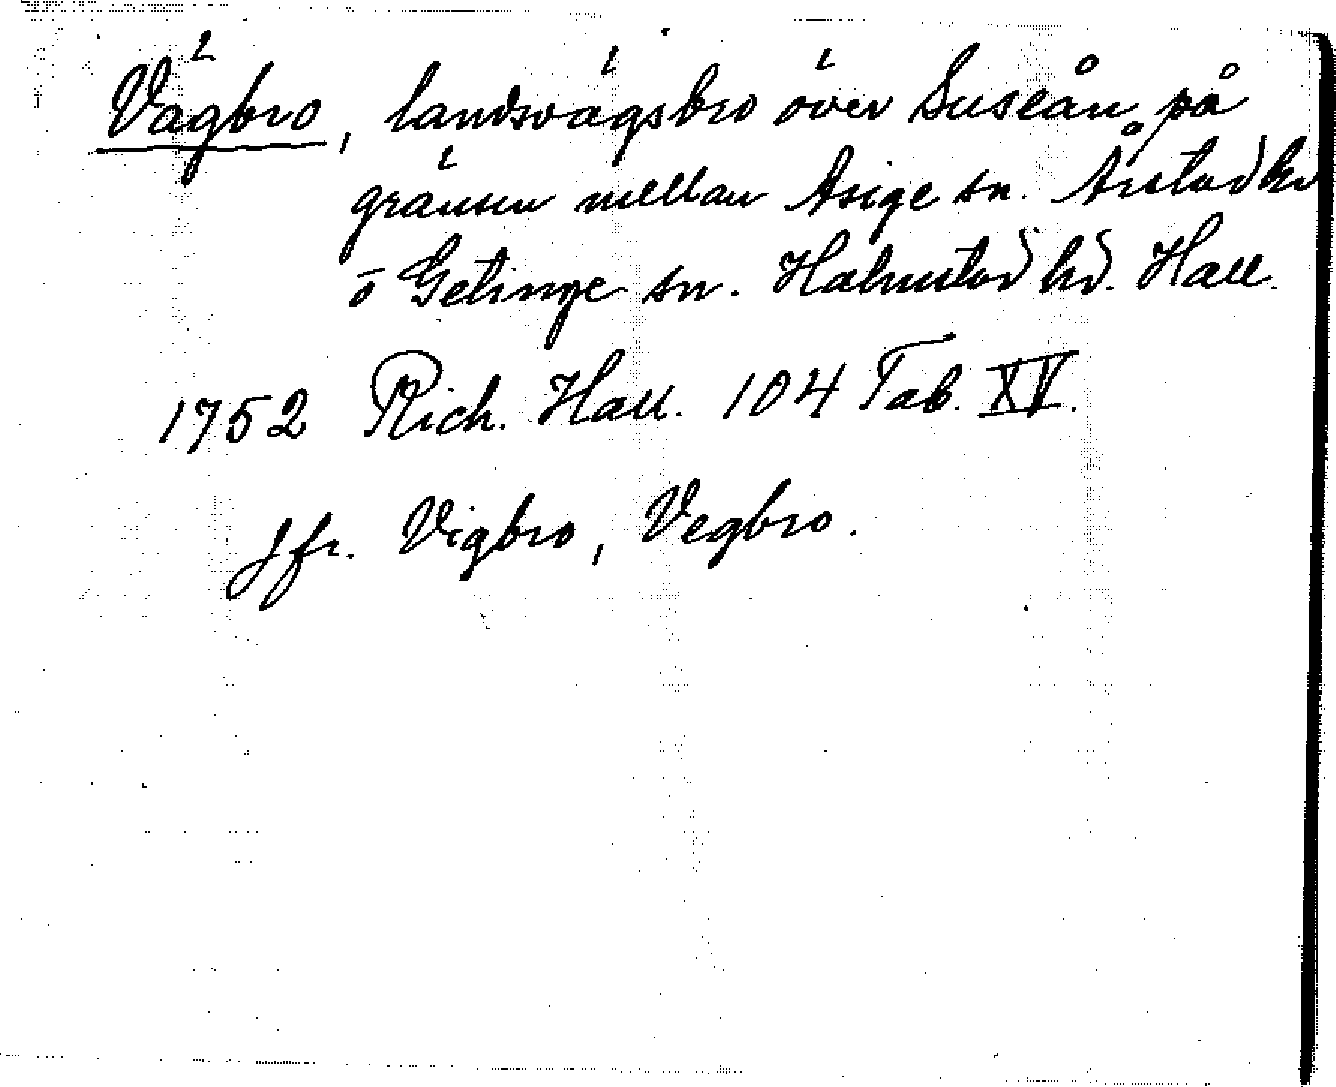 Vägbro, landsvägsbro över Suseån på
gränsen mellan Asige sn. Årstad hd
o Getinge sn. Halmstad hd. Hall.
1752 Rich. Hall. 104 Tab. XV.
Jfr. Vigbro, Vegbro.